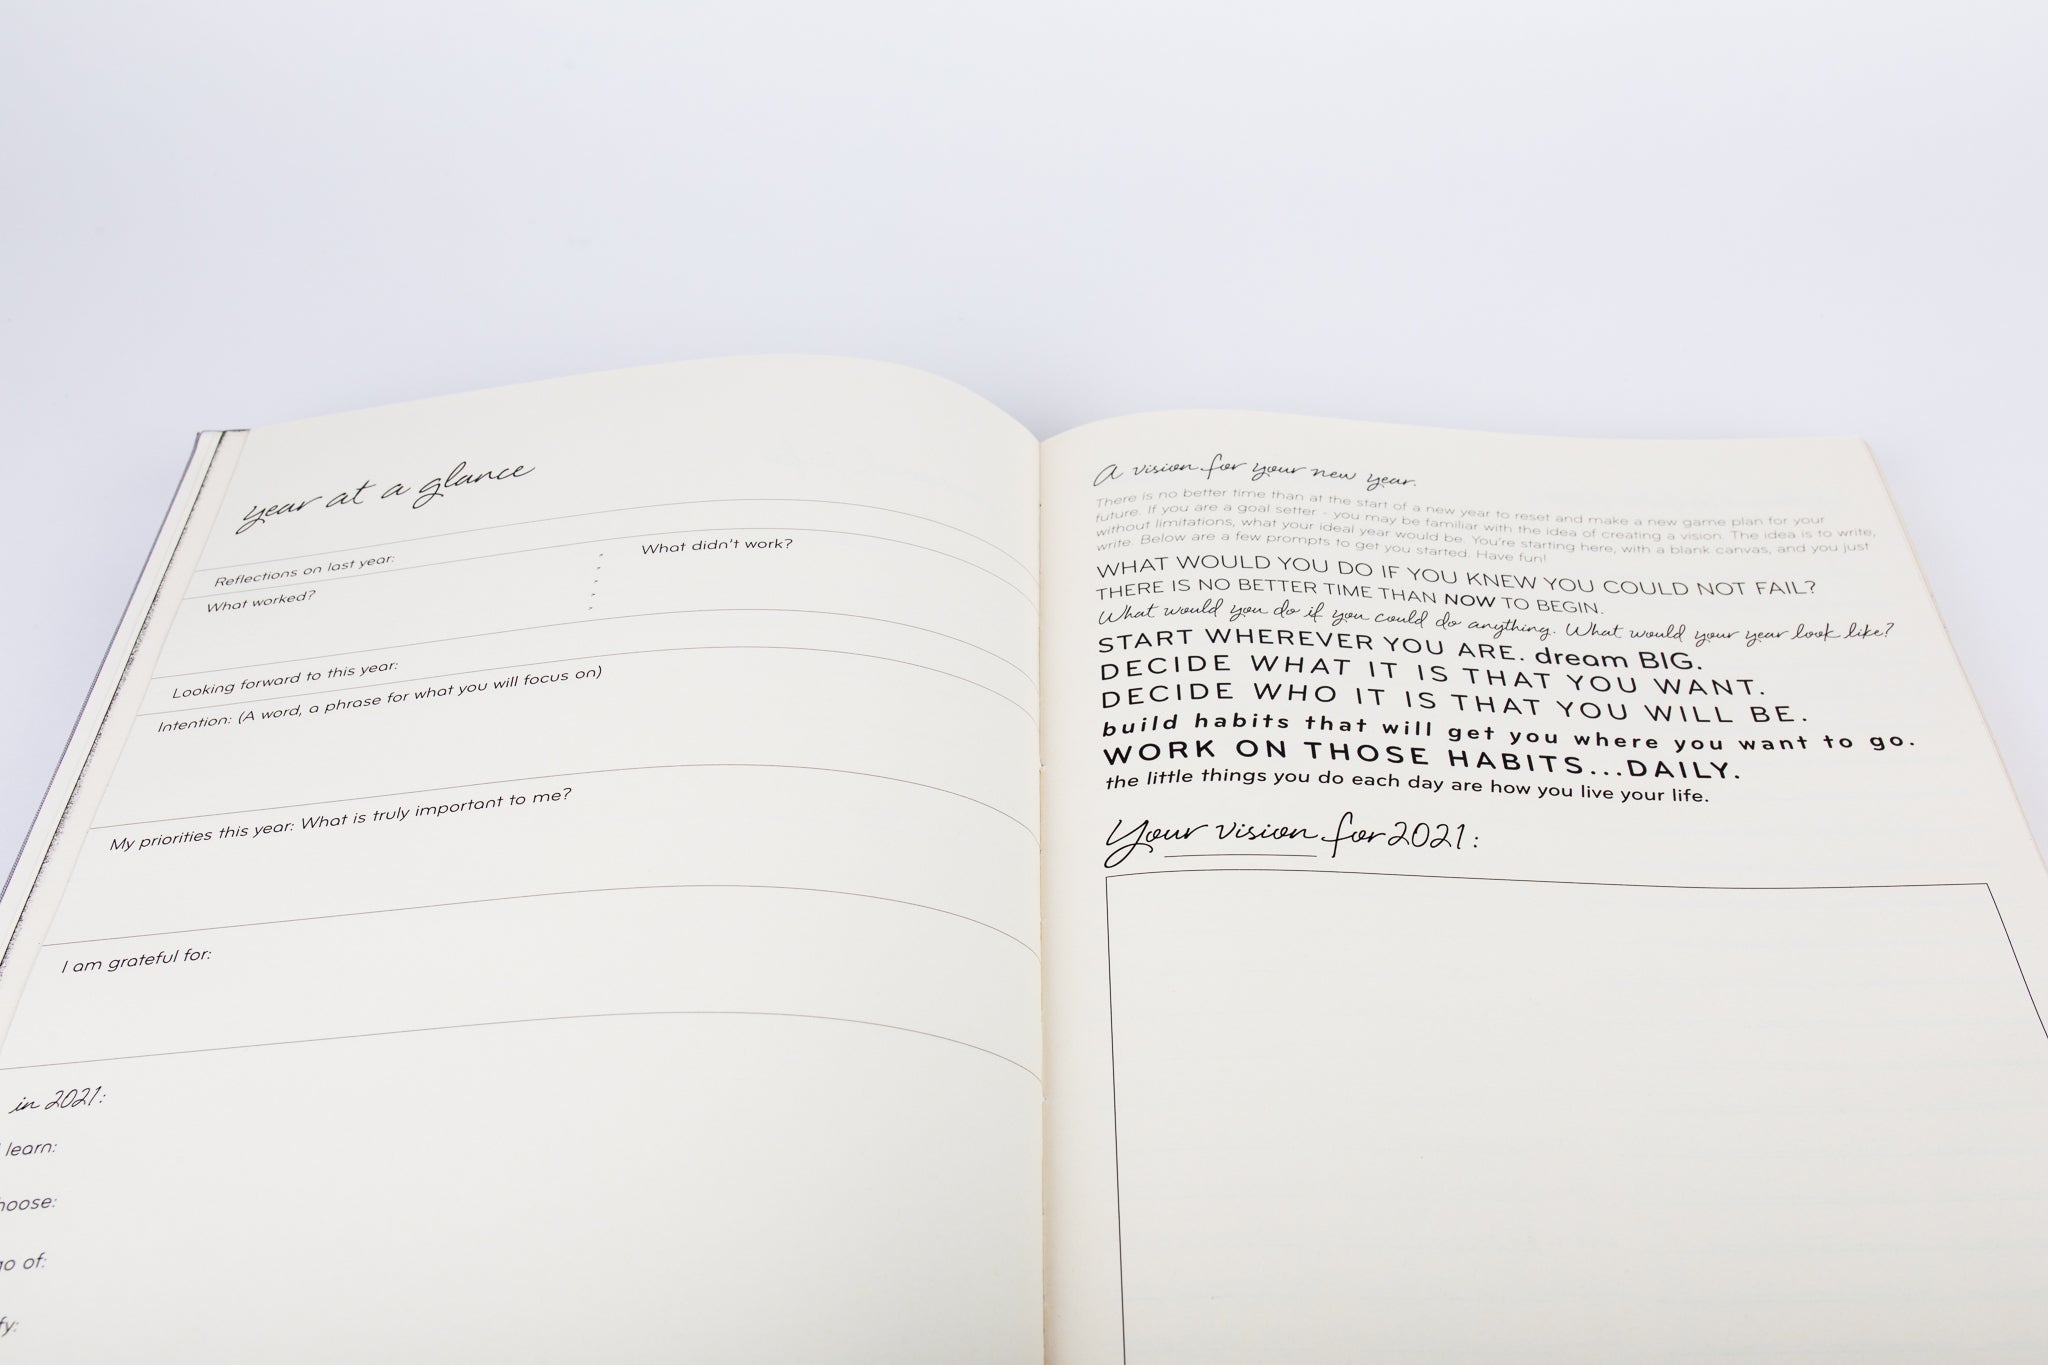 year at a glance
Reflections on last year:
What worked?
What didn't work?
Looking forward to this year:
Intention: (A word, a phrase for what you will focus on)
My priorities this year: What is truly important to me?
I am grateful for:
in 2021:
learn:
of:
A vision for your new year.
There is no better time than at the start of a new year to reset and make a new game plan for your
future. If you are a goal setter - you may be familiar with the idea of creating a vision. The idea is to write,
without limitations, what your ideal year would be. You're starting here, with a blank canvas, and you just
write. Below are a few prompts to get you started. Have fun!
WHAT WOULD YOU DO IF YOU KNEW YOU COULD NOT FAIL?
THERE IS NO BETTER TIME THAN NOW TO BEGIN.
What would you do if you could do anything. What would your year look like?
START WHEREVER YOU ARE. dream BIG.
DECIDE WHAT IT IS THAT YOU WANT.
DECIDE WHO IT IS THAT YOU WILL BE.
build habits that will get you where you want to go.
WORK ON THOSE HABITS...DAILY.
the little things you do each day are how you live your life.
Your vision for 2021: